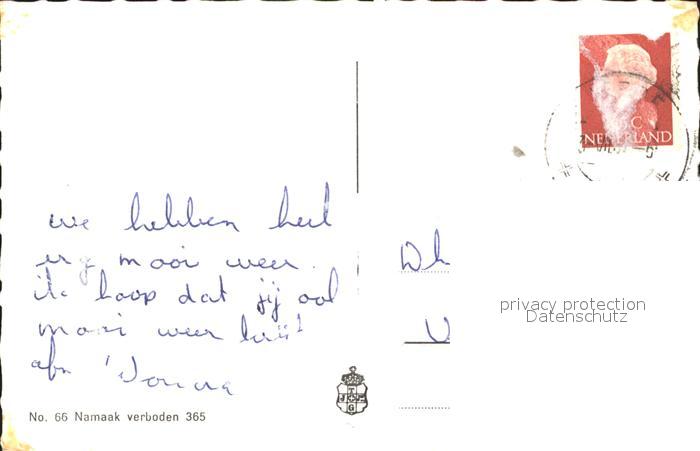 C
NEDERLAND
we hebben heel
erg mooi weer.
ik hoop dat jij ook
mooi weer
afz
Dh
privacy protection
Datenschutz
T
G
No. 66 Namaak verboden 365